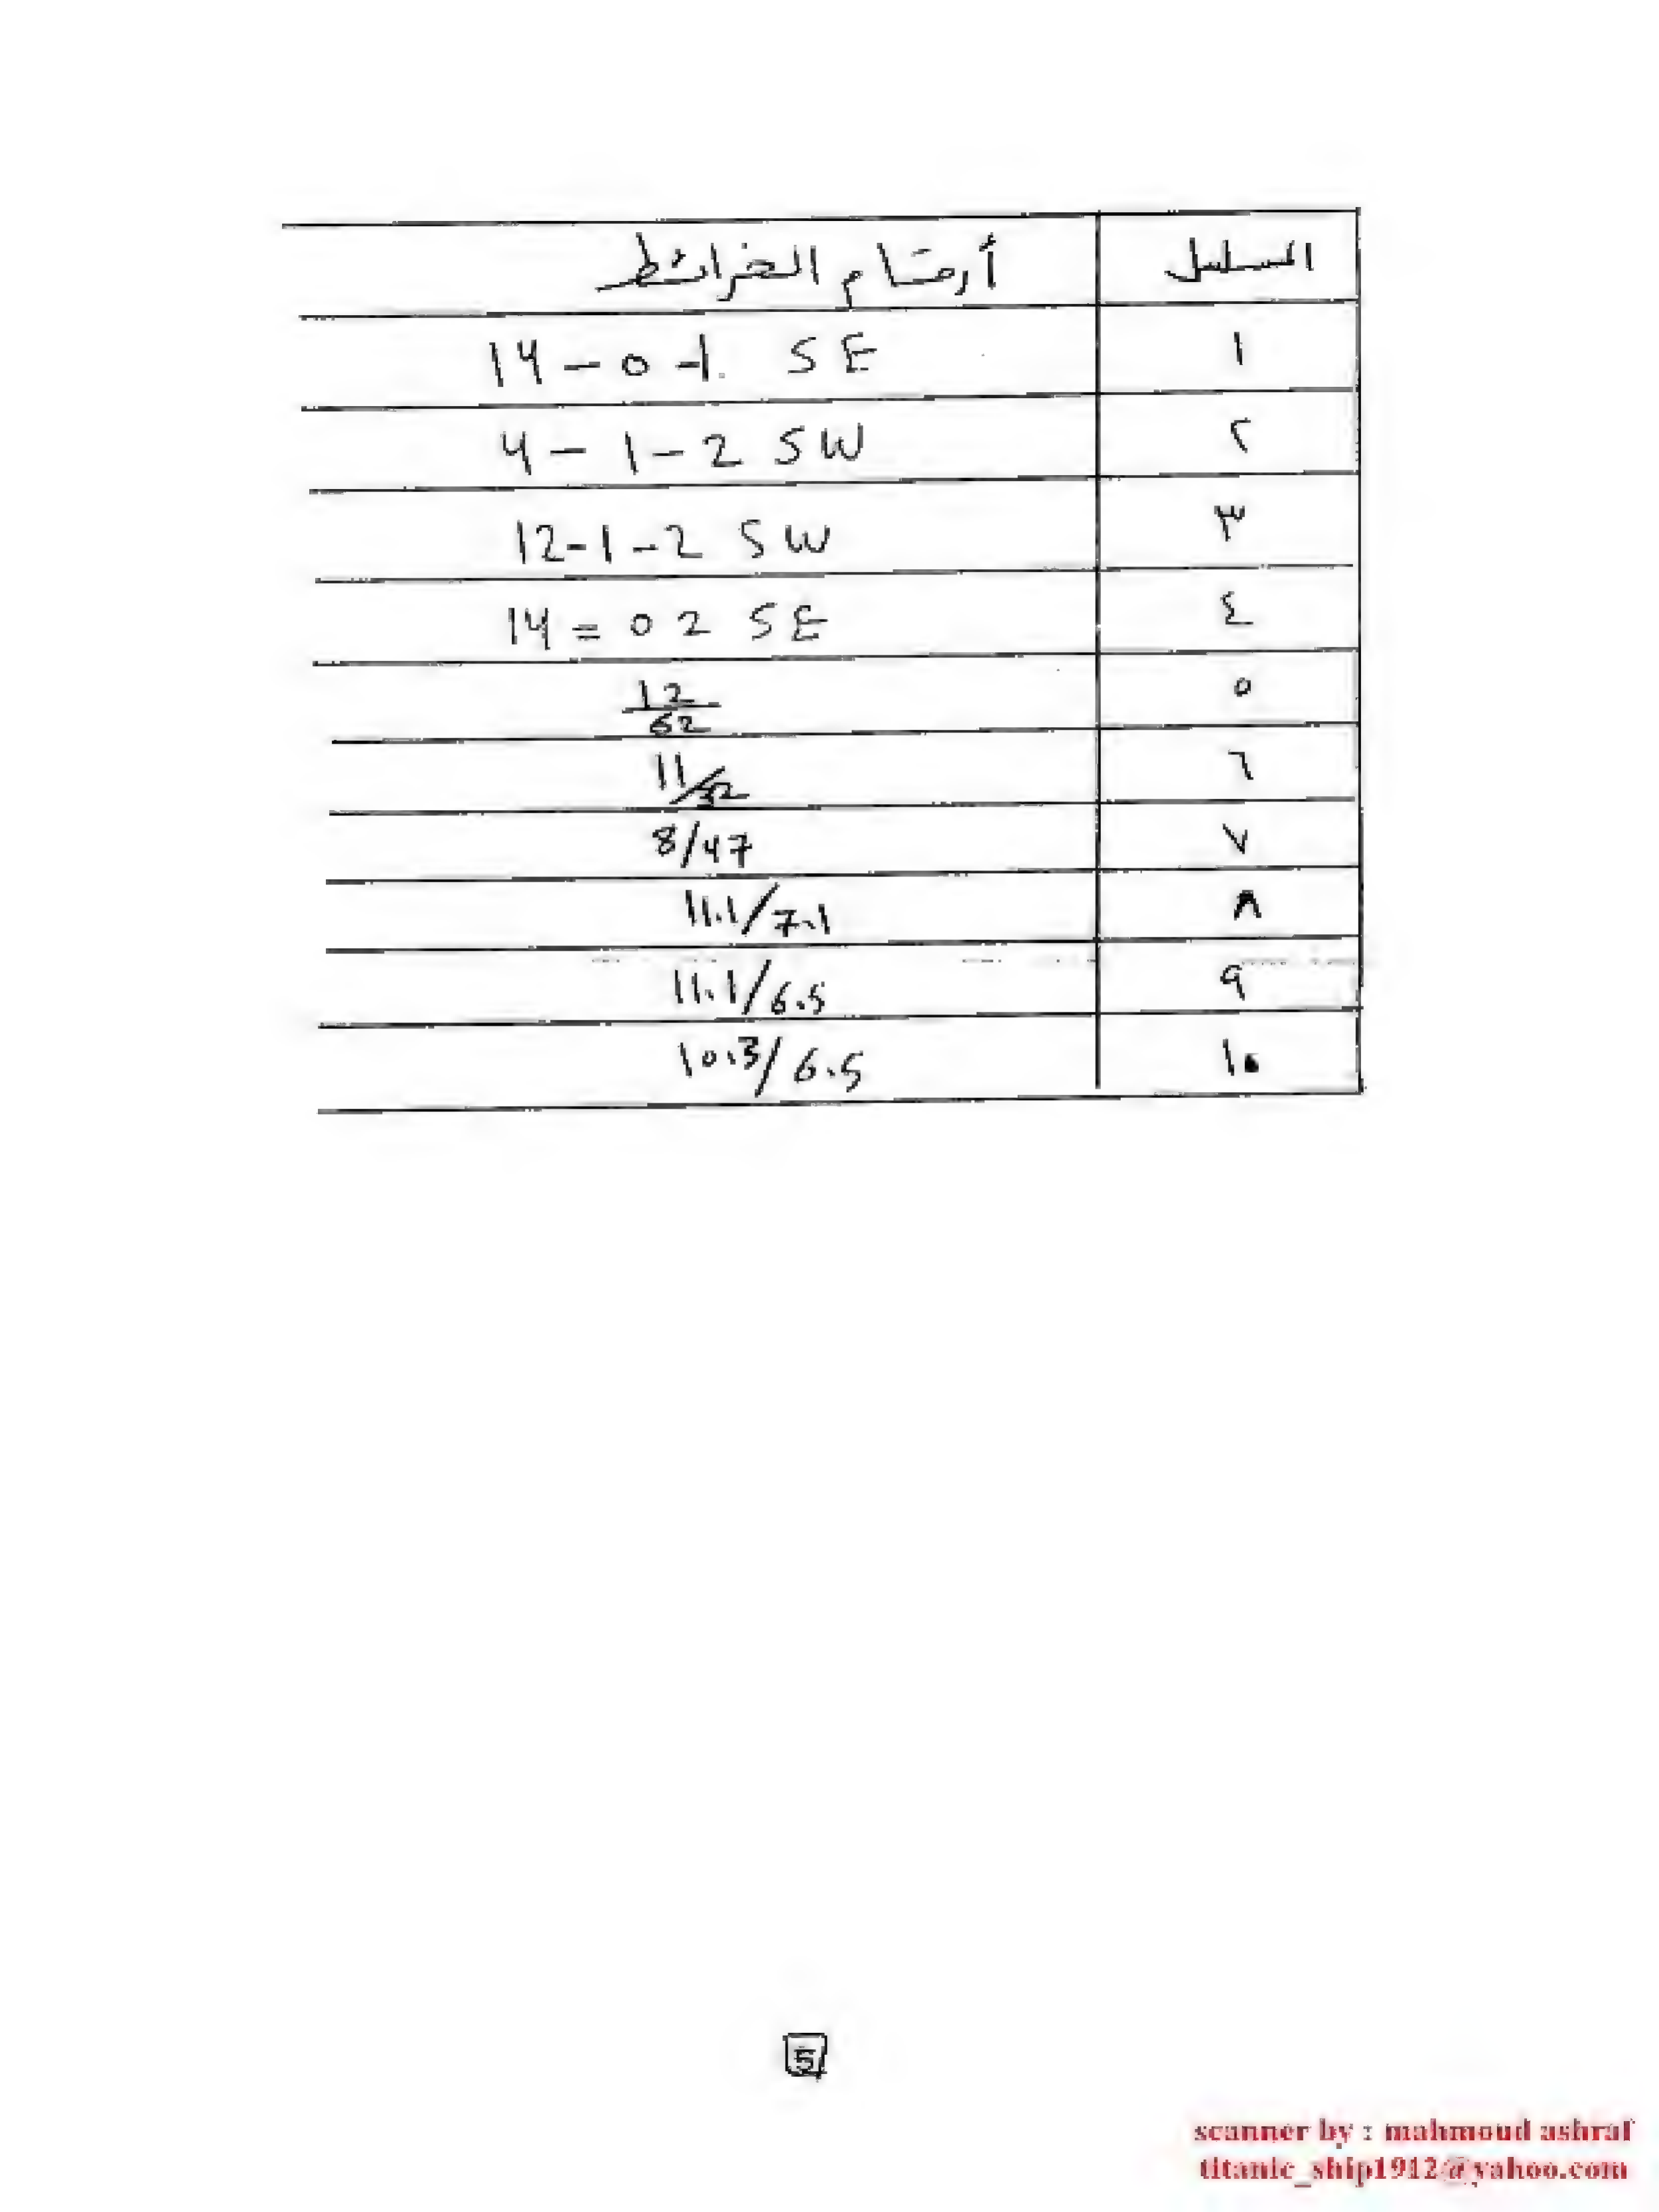 المسلسل أرقام الخرائط
١ 14-0-1. SE
٢ 4-1-2 SW
٣ 12-1-2 SW
٤ 14=02 SE
٥ 12/62
٦ 11/32
٧ 8/47
٨ 11.1/7.1
٩ 11.1/6.5
١٠ 10.3/6.5
5
scanner by : mahmoud ashraf
titanic_ship1912@yahoo.com